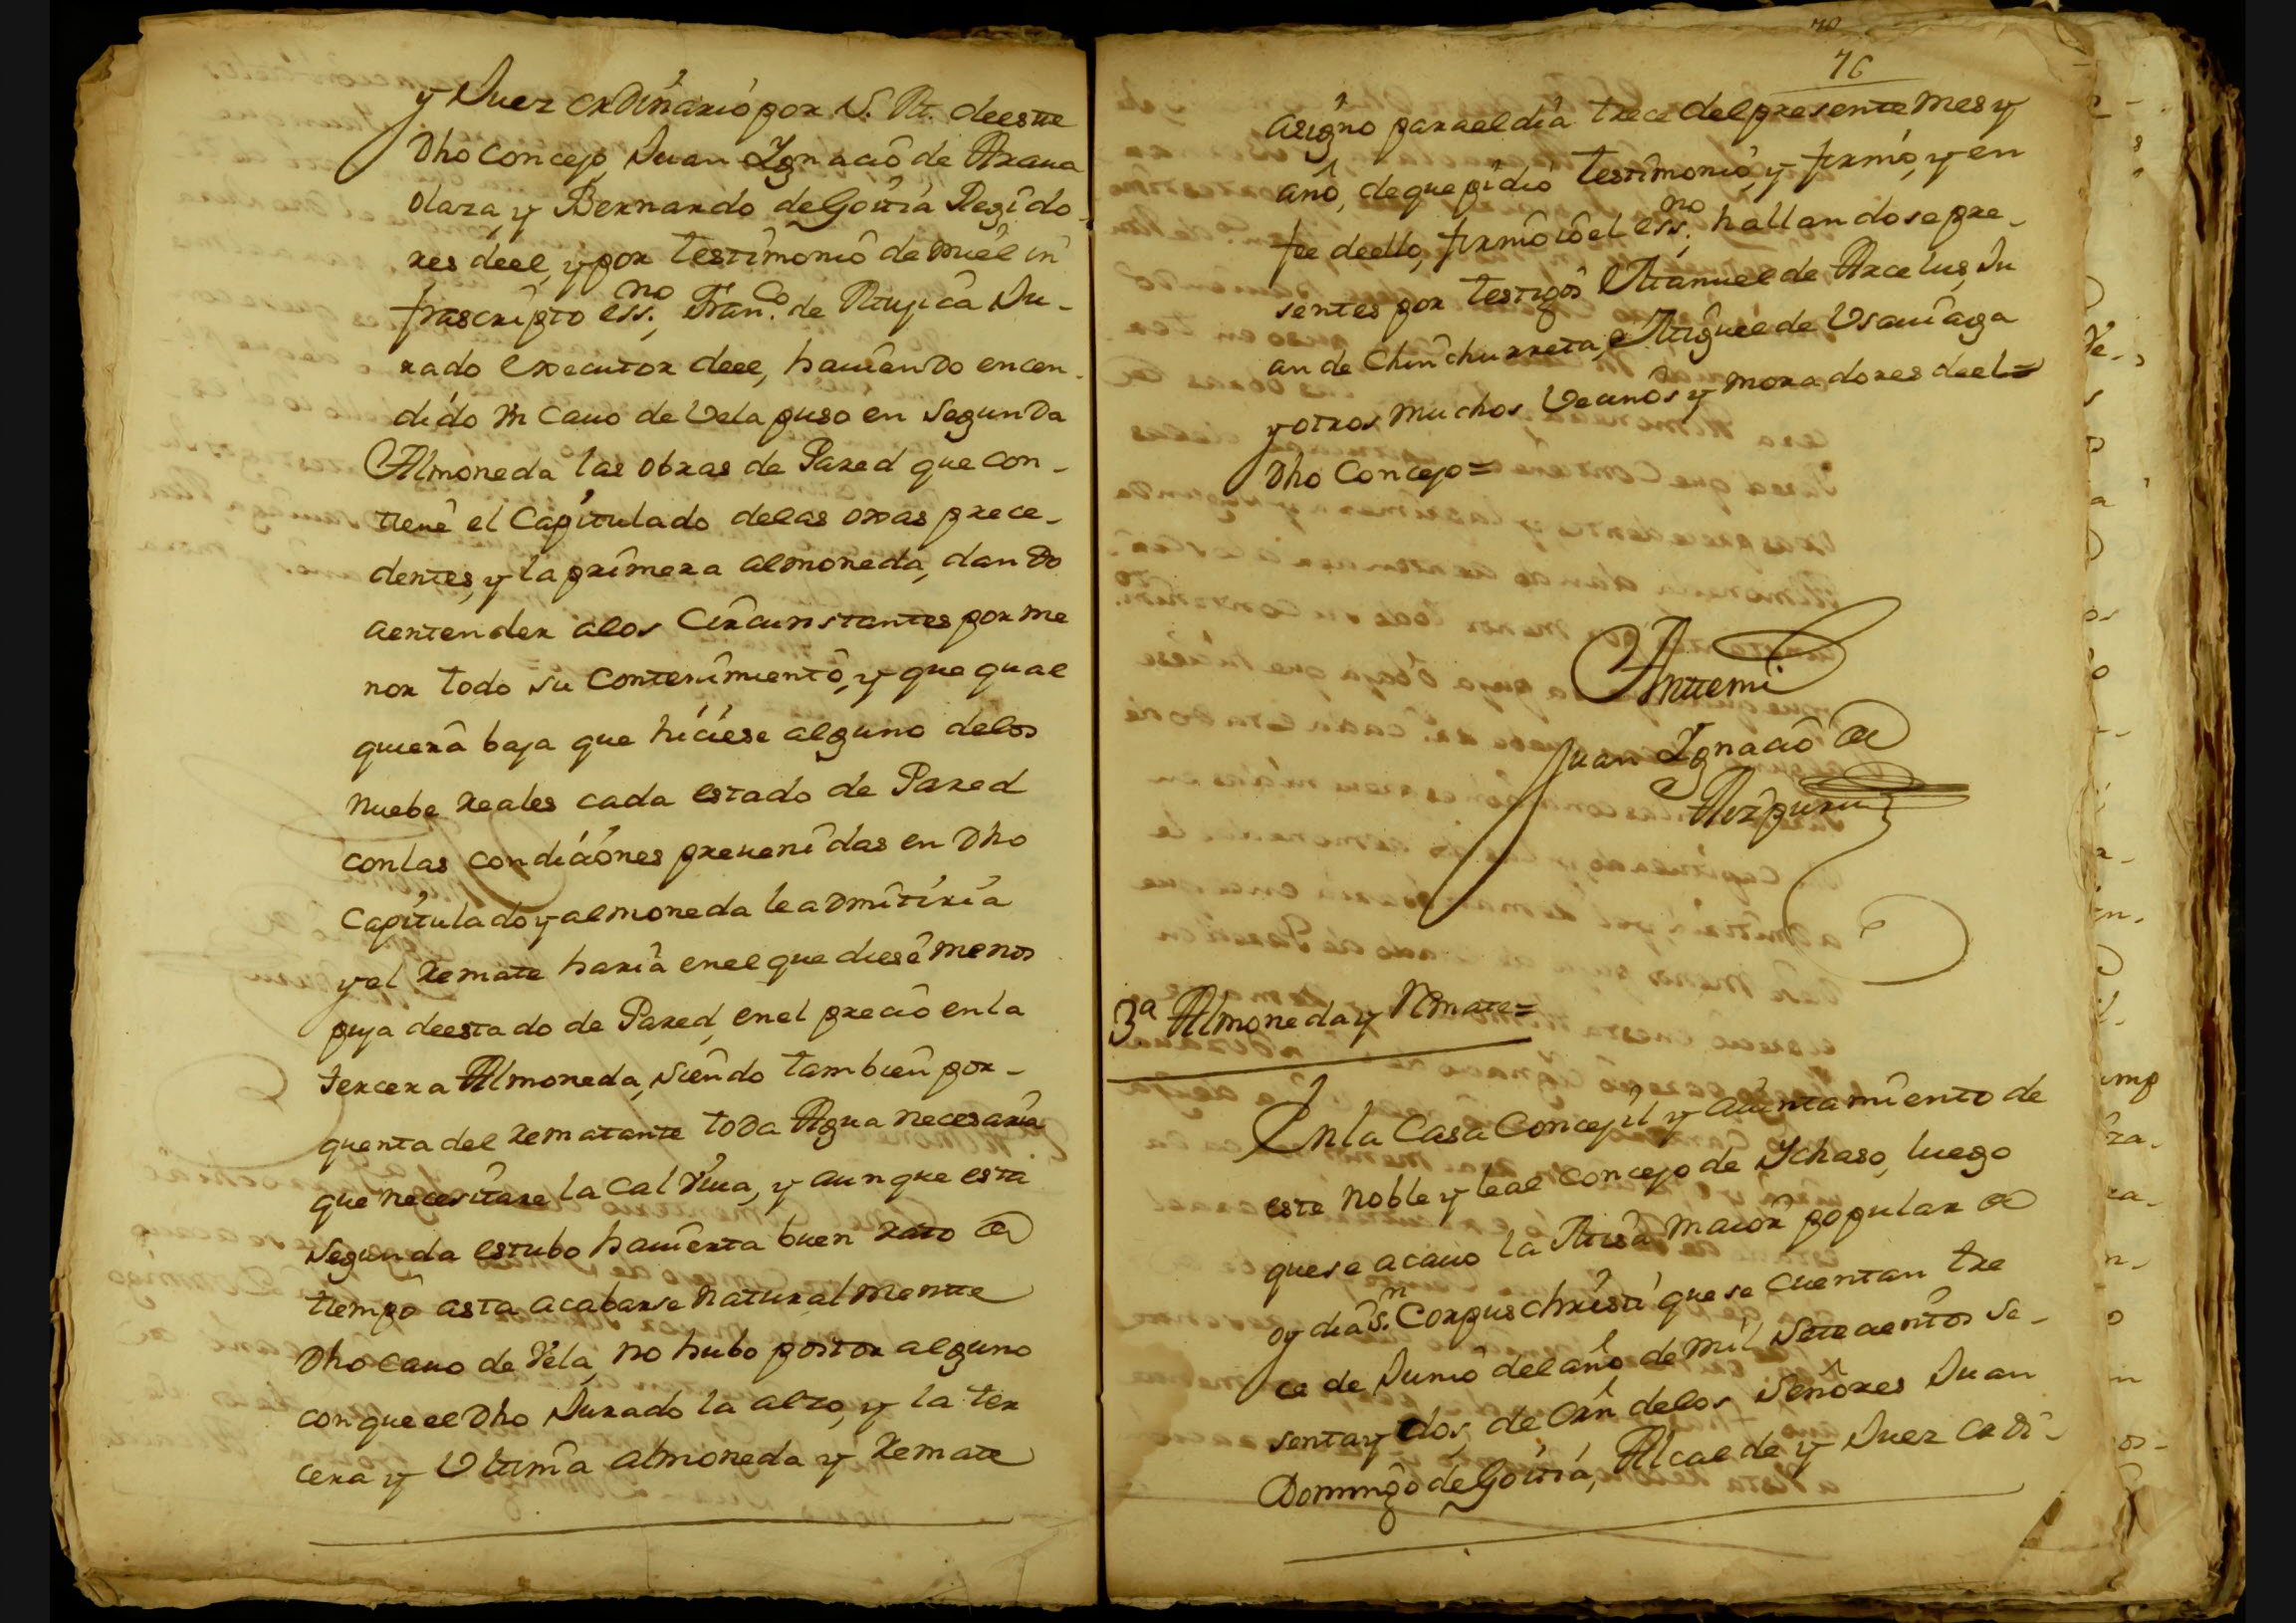 y Juez ordinario por S. M. de este
Dho Concejo, Juan Ygnacio de Arana
olaza, y Bernardo de Goitia Regido-
res de el, y por testimonio de mi el in
frascripto ess.no, Fran.co de Mujica Ju-
rado executor de el, hauiendo encen-
dido vn cauo de Vela puso en Segunda
Almoneda las obras de Pared que con-
tiene el Capitulado delas oxas prece-
dentes, y la primera almoneda, dando
aentender alos Circunstantes por me
nor todo su Contenimiento, y que qual
quiera baja que hiciese alguno delos
nuebe reales cada estado de Pared
conlas condiciones preuenidas en Dho
Capitulado y almoneda le admitiria
y el remate haria en el que diese menos
puja de estado de Pared, en el precio en la
tercera Almoneda, siendo tambien por-
quenta del rematante toda Agua necesaria
que necesitare la Cal viua, y aunque esta
Segunda estubo hauierta buen rato de
tiempo asta acabarse naturalmentte
Dho cauo de Vela, no hubo postor alguno
con que el Dho Jurado la alzo, y la ter
cera y Vltima almoneda y remate
76
asigno para el dia trece del presente mes y
año, de que pidio testimonio, y firmo, y en
fee de ello, firmo io el ess.no, hallandose pre-
sentes por testigos Manuel de Arcelus, Ju
an de Chinchurreta, e Miguel de Vsauiaga
y otros muchos Vecinos y moradores de el =
Dho Concejo =
Anttemi
Juan Ygnacio de
Aizpuru
3a Almoneda y Remate =
En la Casa Concejil y auintamiento de
este noble y leal Concejo de Ychaso, luego
que se acauo la Misa maior popular de
oy dia S.n Corpus christi que se cuentan tre
ce de Junio del año de mil Setecientos se-
senta y dos, de orn delos Señores Juan
Domingo de Goitia, Alcalde y Juez ordi-